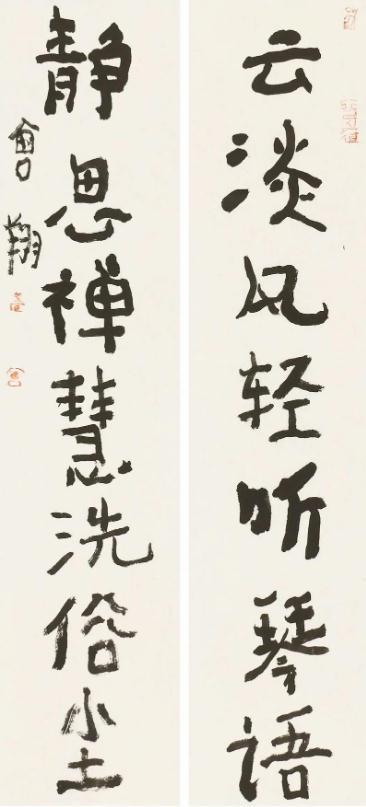 云淡风轻听琴语
静思禅慧洗俗尘
曾翔